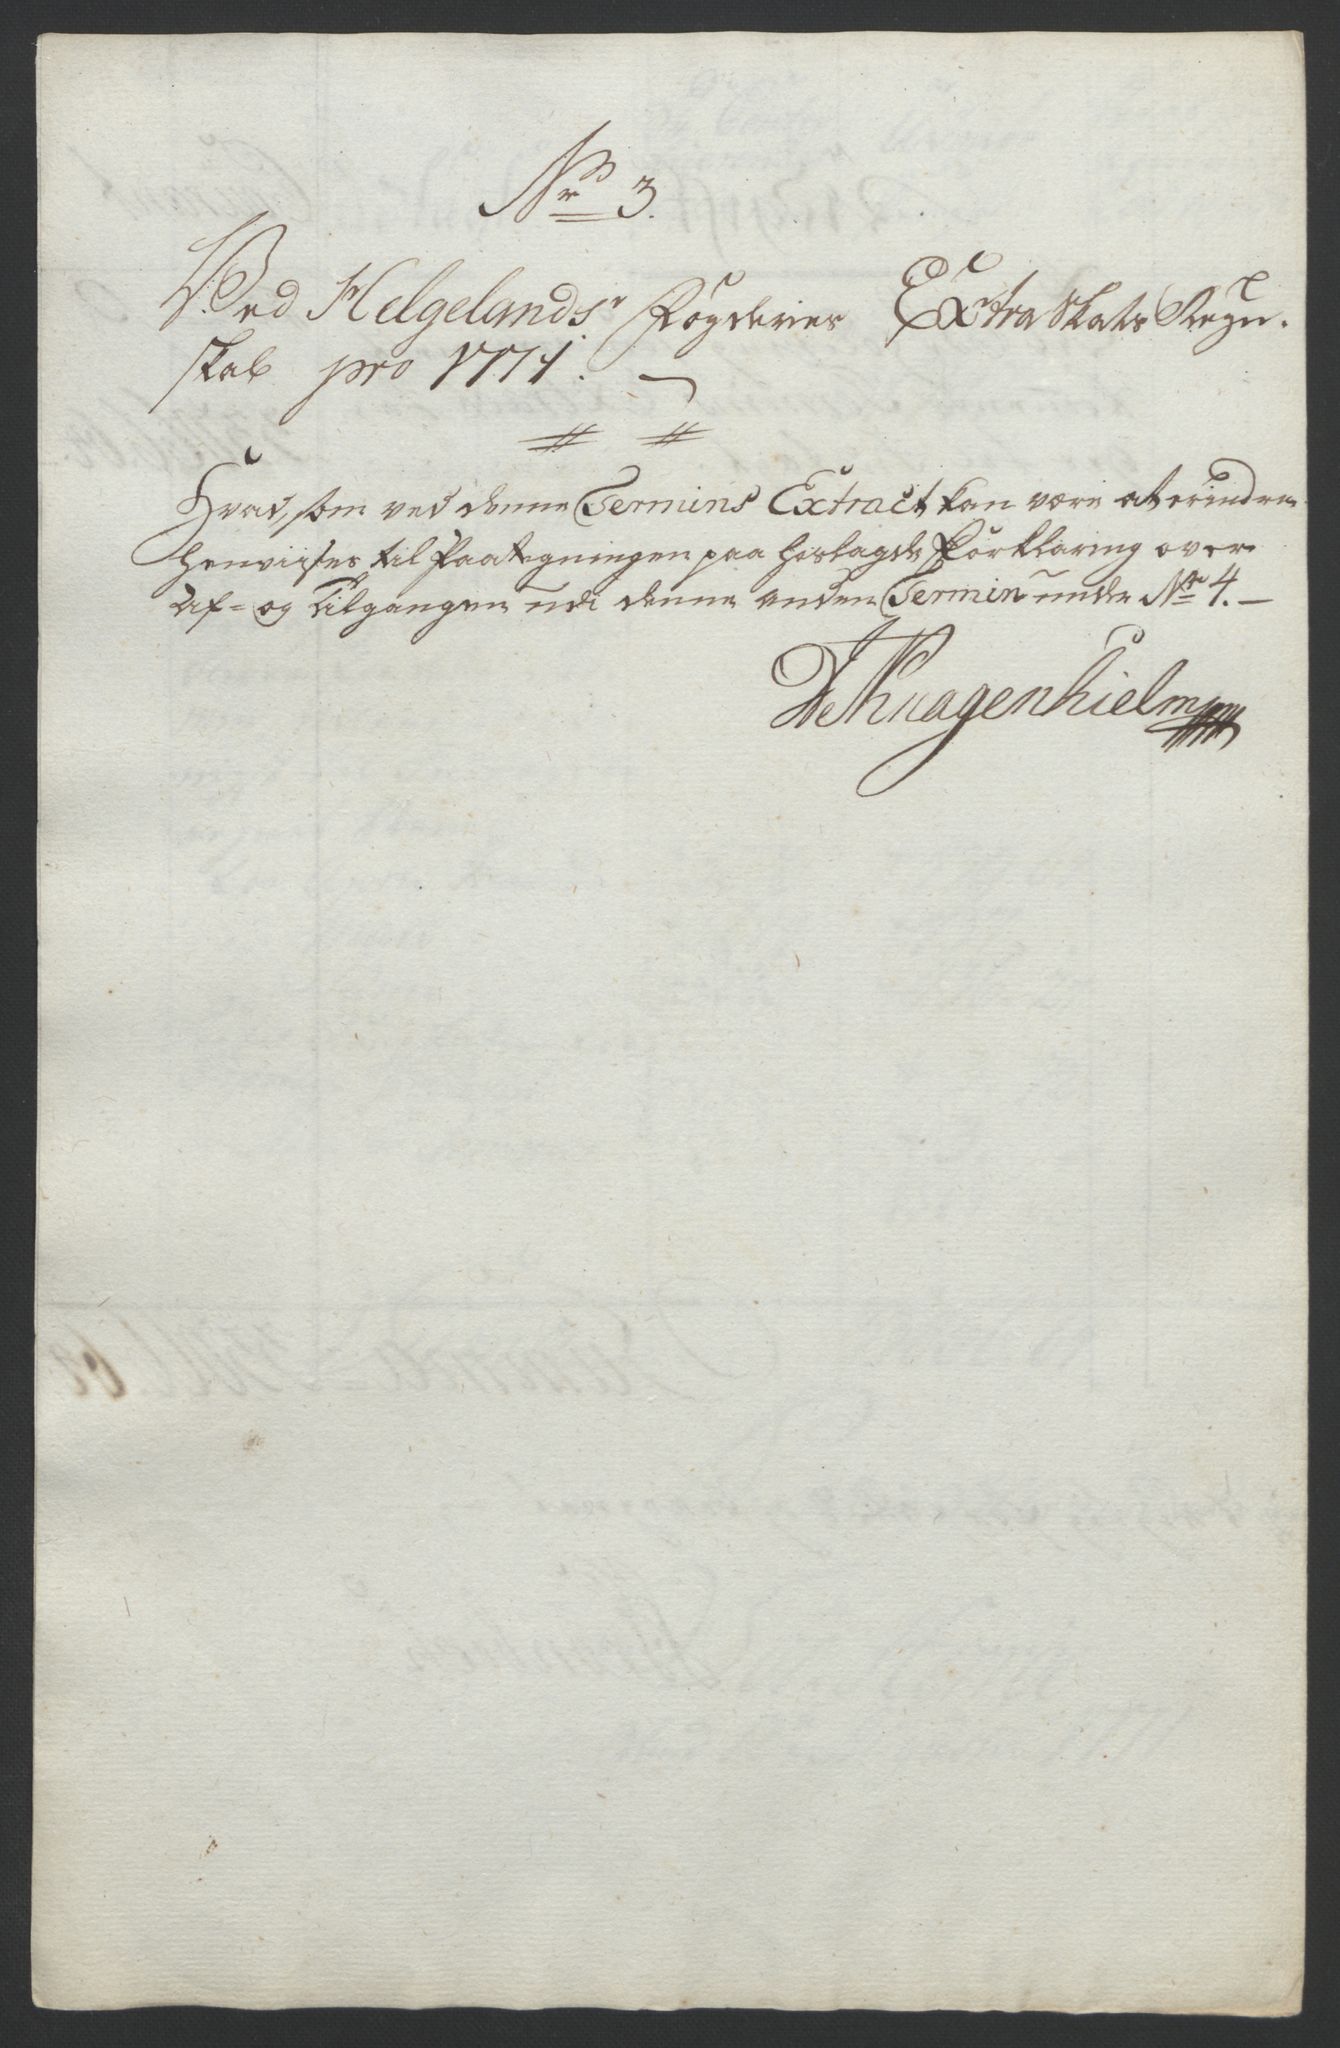 Nr 3.
Ved Helgelands Fogderies Extra Skats Regn-
skab pro 1771.
Hvad, som ved denne Termins Extract kan være at erindre
henviises til Paategningen paa hoslagde Forklaring over
Af- og Tilgangen udi denne anden Termin under No 4.
Knagenhielm